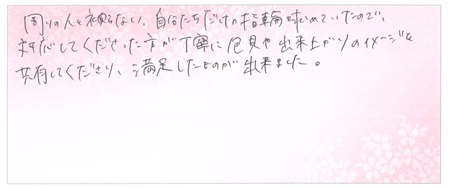 周りの人と被らない、自分たちだけの指輪を求めていたので、
対応してくださった方が丁寧に意見や出来上がりのイメージを
共有してくださり、満足したものが出来ました。